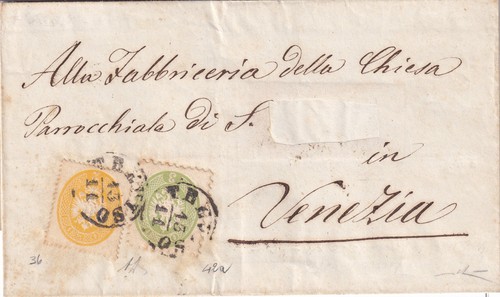 Alla Fabbriceria della Chiesa
Parrocchiale di S.
in
Venezia
36
42a